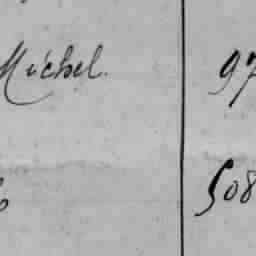 Michel. 97
508